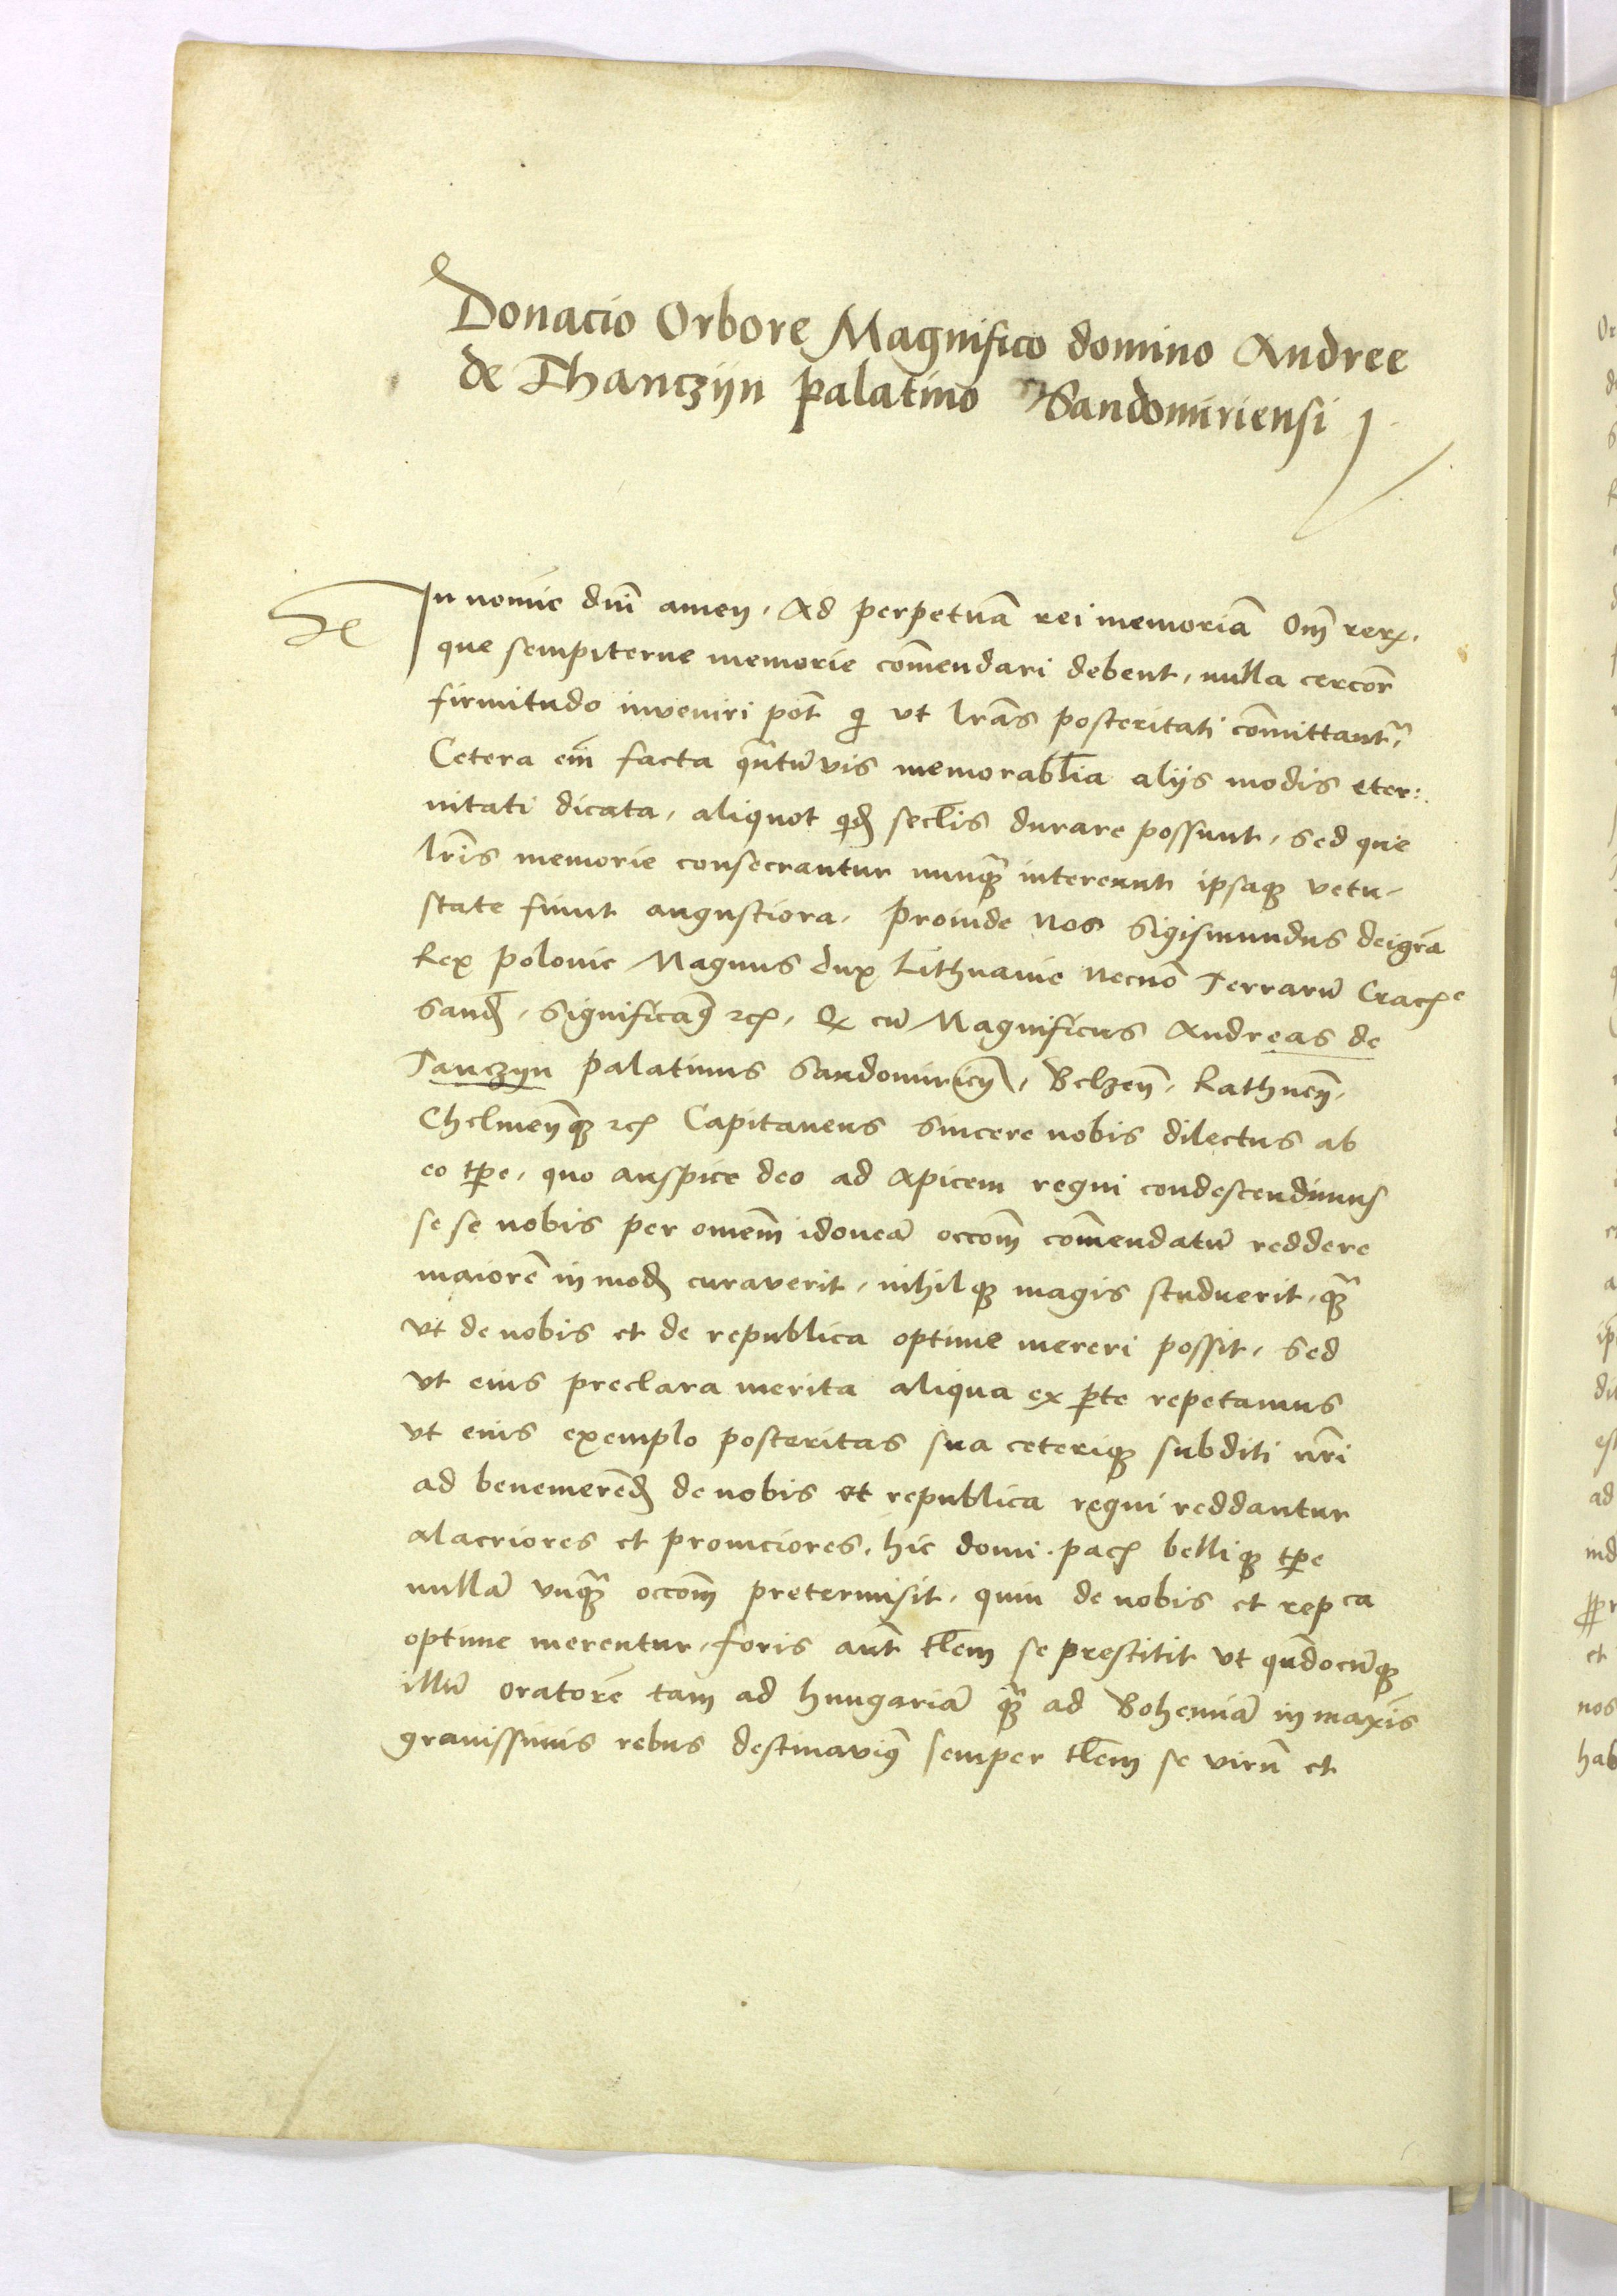 Donacio Orbore Magnifico domino Andree
de Thanczÿn palatino Sandomiriensi
In nomīe dnī amen, Ad perpetuā rei memoriā Om̄ rerꝝ,
que sempiterne memorie com̄endari debent, nulla cercor̄
firmitudo inveniri pōt qͥ vt lrās posteritati com̄ittantʳ,
Cetera em̄ facta qͣntūvis memorabl̄ia alÿs modis eter:
nitati dicata, aliquot qͥdꝫ secl̄is durare possunt, sed que
lrīs memorie consecrantur nunqꝫͣ intereunt ipsaqꝫ vetu-
state fiunt angustiora, proinde Nos Sigismundus deigrā
Rex polonie Magnus dux Lithuanie Necnō Terrarū Cracꝭᵉ
Sandꝭ, Significamꝰ ꝛcꝭ, Qꝫ cū Magnificus Andreas de
Tanczÿn palatinus Sandomirieñ, Belzeñ, Rathneñ,
Chelmeñqꝫ ꝛcꝭ Capitaneus sincere nobis dilectus ab
eo tp̄e, quo auspice deo ad apicem regni condescendimus
se se nobis per omem̄ idoneā occom̄ com̄endatū reddere
maiorē in modꝫ curaverit, nihilqꝫ magis studuerit, qꝫͣ
vt de nobis et de republica optime mereri possit, Sed
vt eius preclara merita aliqua ex p̱te repetamus
vt eius exemplo posteritas sua ceteriqꝫ subditi nr̄i
ad benemerēdꝫ de nobis et republica regni reddantur
alacriores et promciores, hic domi, pacꝭ belliqꝫ tp̄e
nullā vnqꝫͣ occom̄ pretermisit, quin de nobis et repca
optime merentur, foris aut̄ tl̄em se prestitit vt qn̄docūqꝫ
illū oratorē tam ad hungariā qꝫͣ ad Bohemiā in maxīs
gravissimis rebus destinavimꝰ semper tl̄em se virū et